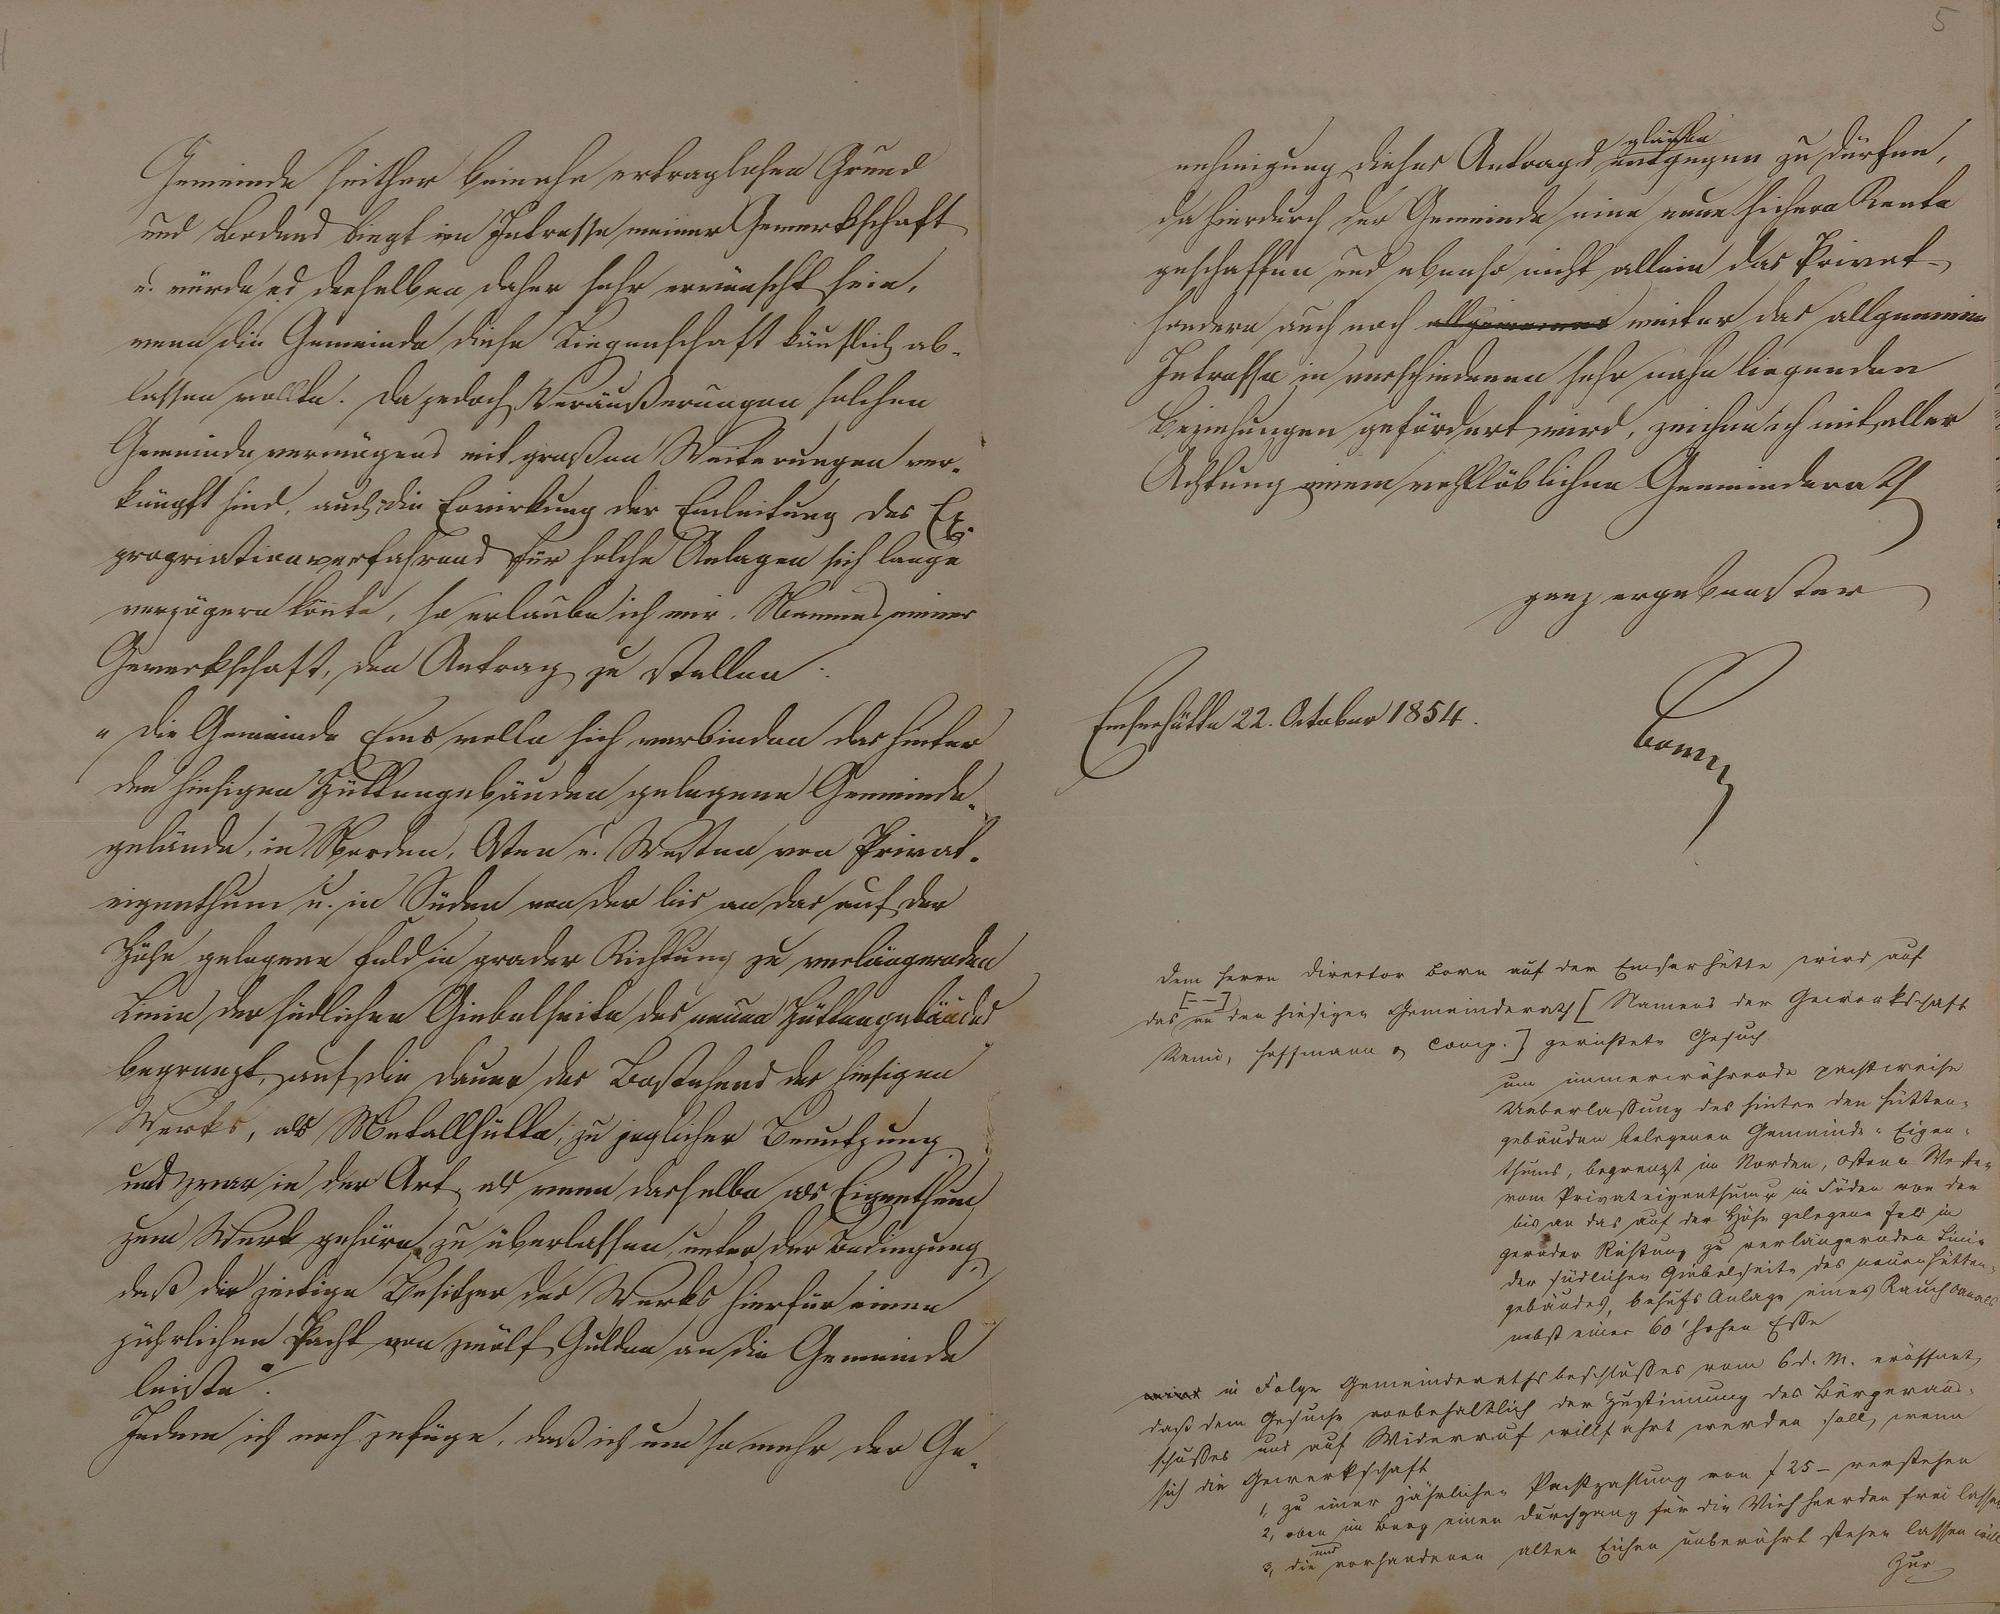 Gemeinde seither beinahe ertraglosen Grund
und Bodens liegt im Intresse meiner Gewerkschaft
u. würde es derselben daher sehr erwünscht sein,
wenn die Gemeinde diese Liegenschaft käuflich ab-
lassen wollte. Da jedoch Veräußerungen solchen
Gemeindevermögens mit großen Weiterungen ver-
knüpft sind, auch die Erwirkung der Einleitung des Ex-
propriationverfahrens für solche Anlagen sich lange
verzögern könnte, so erlaube ich mir, Namens meiner
Gewerkschaft, den Antrag zu stellen:
"Die Gemeinde Ems wolle sich verbinden das hinter
den hiesigen Hüttengebäuden gelegene Gemeinde-
gelände, in Norden, Osten u. Westen von Privat-
eigenthum u. in Süden von der bis an das auf der
Höhe gelegene Feld in grader Richtung zu verlängernden
Linie der südlichen Giebelseite des neuen Hüttengebäudes
begrenzt, auf die Dauer des Bestehens des hiesigen
Werks, als Metallhütte, zu jeglicher Benutzung
und zwar in der Art als wenn dasselbe als Eigenthum
zum Werk gehöre, zu überlassen, unter der Bedingung,
daß der zeitige Besitzer des Werks hierfür einen
jährlichen Pacht von zwölf Gulden an die Gemeinde
leiste".
Indem ich noch zufüge, daß ich um so mehr der Ge-
5
nehmigung dieses Antrags entgegen glauben zu dürfen,
da hierdurch der Gemeinde eine neue sichere Rente
geschaffen und ebenso nicht allein das Privat-
sondern auch noch allgemeine weiter das allgemeine
Intresse in verschiedenen sehr nahe liegenden
Beziehungen gefördert wird, zeichne ich mit aller
Achtung einem wohllöblichen Gemeinderath
ganz ergebenster
Emserhütte 22. October 1854.
Born
Dem Herrn Director Born auf der Emserhütte wird auf
das [--] an den hiesigen Gemeinderath [Namens der Gewerkschaft
Remy, Hoffmann & Comp.] gerichtete Gesuch
um immerwährende pachtweise
Ueberlassung des hinter den Hütten-
gebäuden belegenen Gemeinde-Eigen-
thums, begrenzt im Norden, Osten u Westen
vom Privateigenthum u im Süden von der
bis an das auf der Höhe gelegene Feld in
gerader Richtung zu verlängernden Linie
der südlichen Giebelseite des neuen Hütten-
gebäudes, behufs Anlage eines Rauchcanals
nebst einer 60' hohen Esse
in Folge Gemeinderathsbeschlusses vom 6 d. M. eröffnet,
daß dem Gesuche vorbehaltlich der Zustimmung des Bürgeraus-
schusses und auf Widerruf willfahrt werden soll, wenn
sich die Gewerkschaft
1, zu einer jährlichen Pachtzahlung von f 25 – verstehen
2, oben im Berg einen Durchgang für die Viehheerden frei lassen
und
3, die vorhandenen alten Eichen unberührt stehen lassen will
Zur